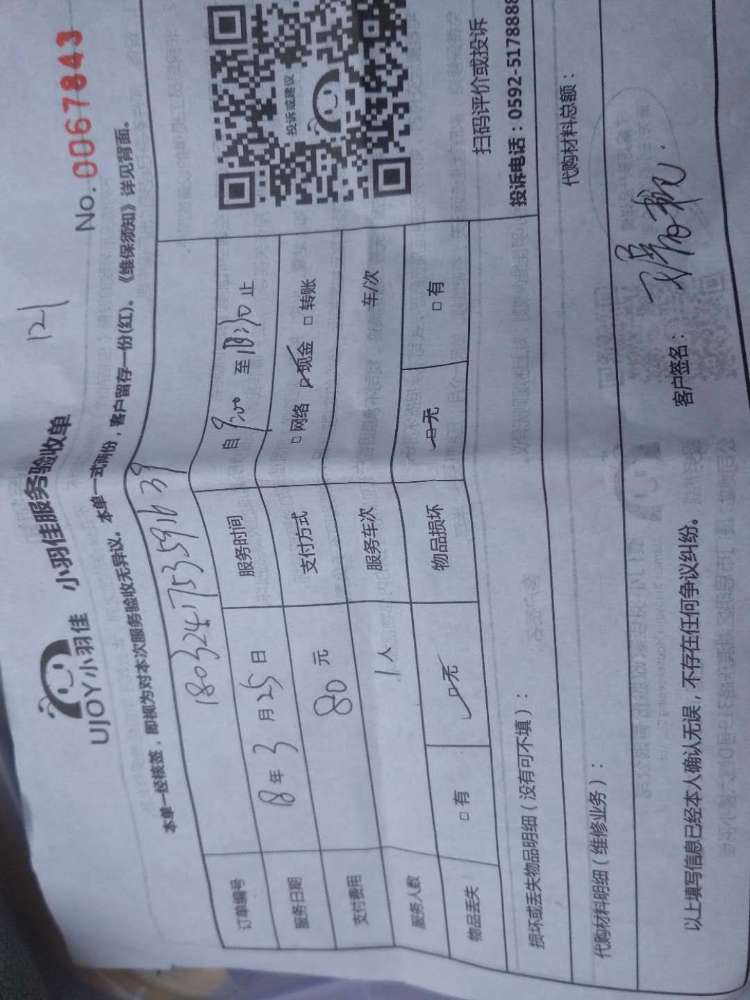 UJOY小羽佳 小羽佳服务验收单 121 No.0067843
本单一经核签,即视为对本次服务验收无异议。本单一式两份,客户留存一份(红)。《维保须知》详见背面。
订单编号 1803241753591639
服务日期 18年3月25日 服务时间 自9:00至18:30止
支付费用 80元 支付方式 □网络 ☑现金 □转账
服务人数 1人 服务车次 车/次
物品丢失 □有 ☑无 物品损坏 ☑无 □有
投诉或建议
扫码评价或投诉
投诉电话:0592-5178888
损坏或丢失物品明细(没有可不填):
代购材料明细(维修业务): 代购材料总额:
以上填写信息已经本人确认无误,不存在任何争议纠纷。 客户签名: